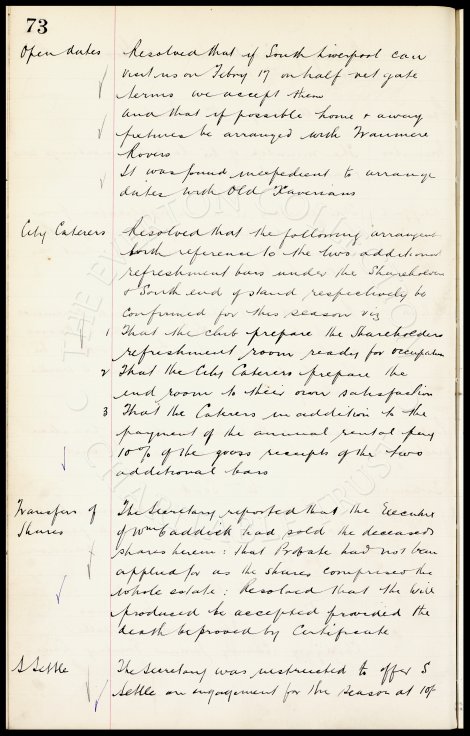 73
Open dates Resolved that if South Liverpool can
visit us on Febry 17 on half net gate
terms we accept them
And that if possible home & away
fixtures be arranged with Tranmere
Rovers
It was found inexpedient to arrange
dates with Old Xaverians
City Caterers Resolved that the following arrangent
with reference to the two additional
refreshment bars under the Shareholders
& South end of stand respectively be
confirmed for this season viz
1 That the club prepare the Shareholders
refreshment room ready for occupation
2 That the City Caterers prepare the
end room to their own satisfaction
3 That the Caterers in addition to the
payment of the annual rental pay
10% of the gross receipts of the two
additional bars
Transfers of The Secretary reported that the Executrix
Shares of Wm Caddick had sold the deceaseds
shares herein: that Probate had not been
applied for as the shares comprised the
whole estate: Resolved that the Will
produced be accepted provided the
death be proved by Certificate
S Settle The Secretary was instructed to offer S
Settle an engagement for the season at 10/-
THE EVERTON COLLECTION
CHARITABLE TRUST